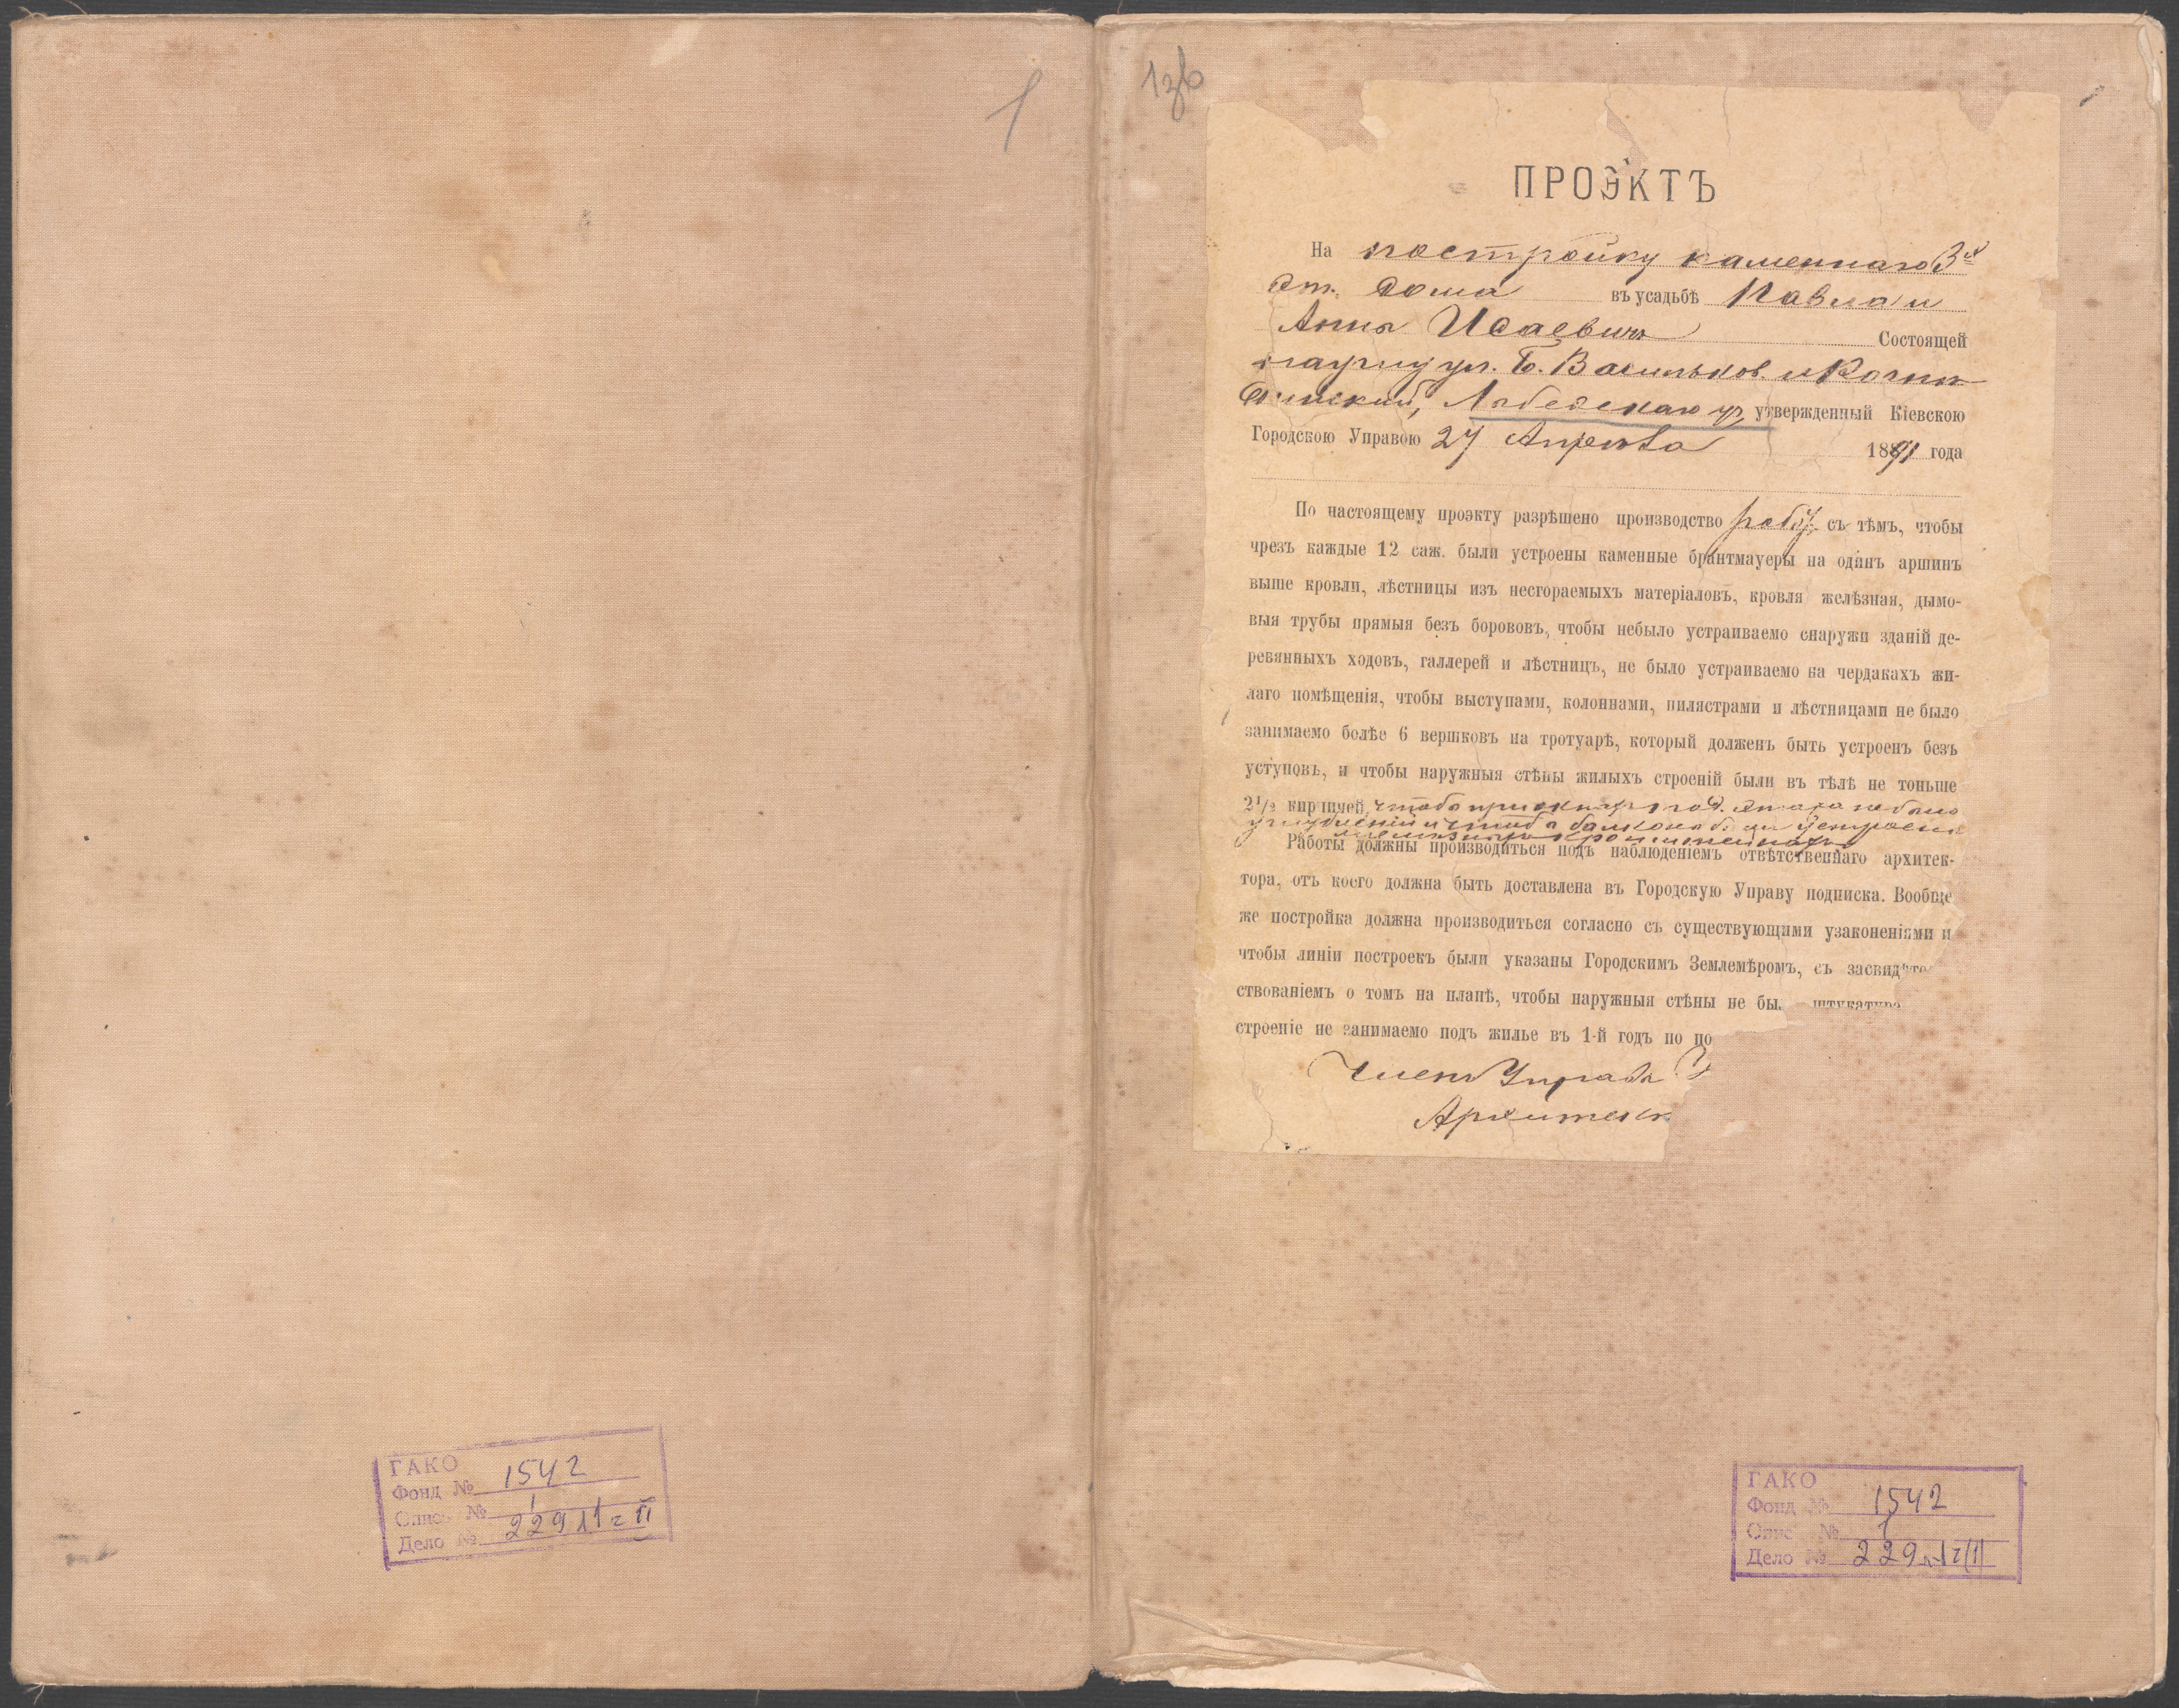 1
1зв
ПРОЭКТЪ
На постройку каменнаго 3х
эт. дома въ усадьбѣ Павла и
Анны Исаевичъ Состоящей
на углу ул. Б. Васильков. и
Лыбедскаго уч. утвержденный Кіевскою
Городскою Управою 27 Апрѣля 1891 года
По настоящему проэкту разрѣшено производство работ съ тѣмъ, чтобы
чрезъ каждые 12 саж. были устроены каменные брантмауеры на одинъ аршинъ
выше кровли, лѣстницы изъ несгораемыхъ матеріаловъ, кровля желѣзная, дымо-
выя трубы прямыя безъ борововъ, чтобы небыло устраиваемо снаружи зданій де-
ревянныхъ ходовъ, галлерей и лѣстницъ, не было устраиваемо на чердакахъ жи-
лаго помѣщенія, чтобы выступами, колоннами, пилястрами и лѣстницами не было
занимаемо болѣе 6 вершковъ на тротуарѣ, который долженъ быть устроенъ безъ
уступовъ, и чтобы наружныя стѣны жилыхъ строеній были въ тѣлѣ не тоньше
2½ кирпичей, чтобы при окнахъ под. этажа не было
углубленій и чтобы балконы были устроены
Работы должны производиться подъ наблюденіемъ отвѣтственнаго архитек-
тора, отъ коего должна быть доставлена въ Городскую Управу подписка. Вообще
же постройка должна производиться согласно съ существующими узаконеніями и
чтобы линіи построекъ были указаны Городскимъ Землемѣромъ, съ засвидѣте
ствованіемъ о томъ на планѣ, чтобы наружныя стѣны не бы штукатуре
строеніе не занимаемо подъ жилье въ 1-й годъ по по
Членъ Управы
Архитек
ГАКО
Фонд № 1542
Опись № 1
Дело № 229
ГАКО
Фонд № 1542
Опись № 1
Дело № 229